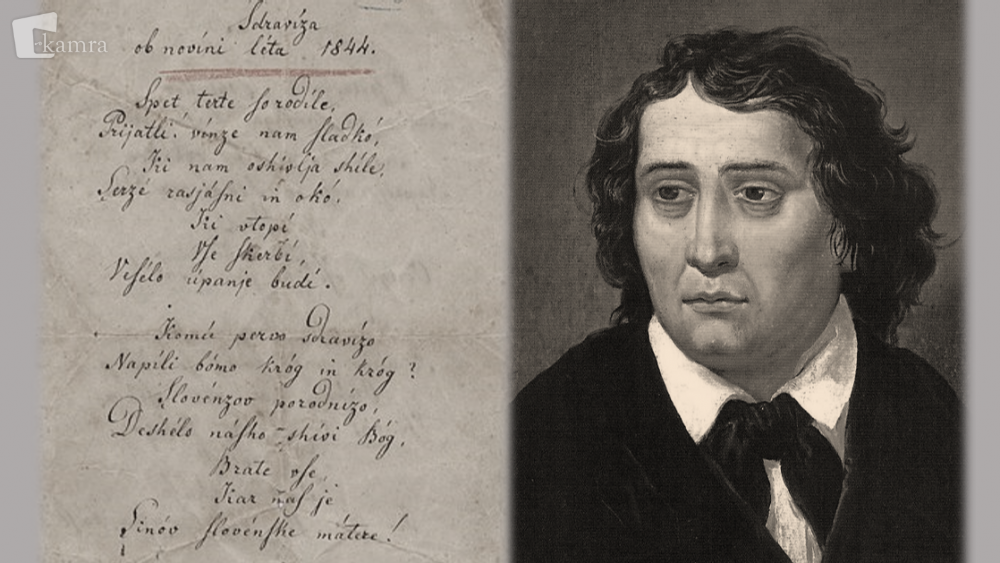 kamra
Sdravíza
ob novíni léta 1844.
Spet terte so rodíle,
Prijatli! vínze nam sladkó,
Ki nam oshivlja shile,
Serzé rasjásni in okó,
Ki vtopí
Vse skerbí,
Vesélo úpanje budí.
Komú pervo sdravízo
Napíli bómo króg in króg?
Slovénzov porodnízo,
Deshélo násho shivi Bóg,
Brate vse,
Kar nas je
Sinóv slovénske mátere!